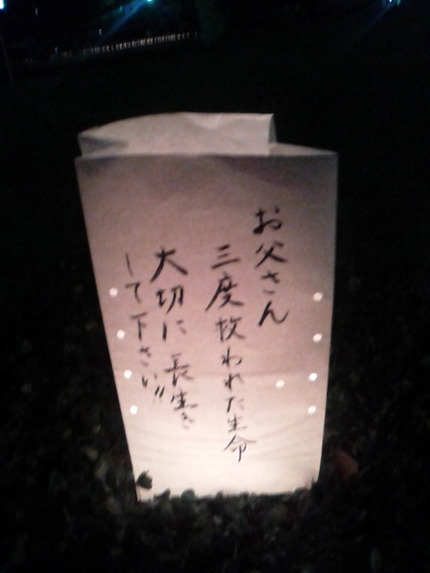 お父さん
三度救われた生命
大切に長生き
して下さい!!